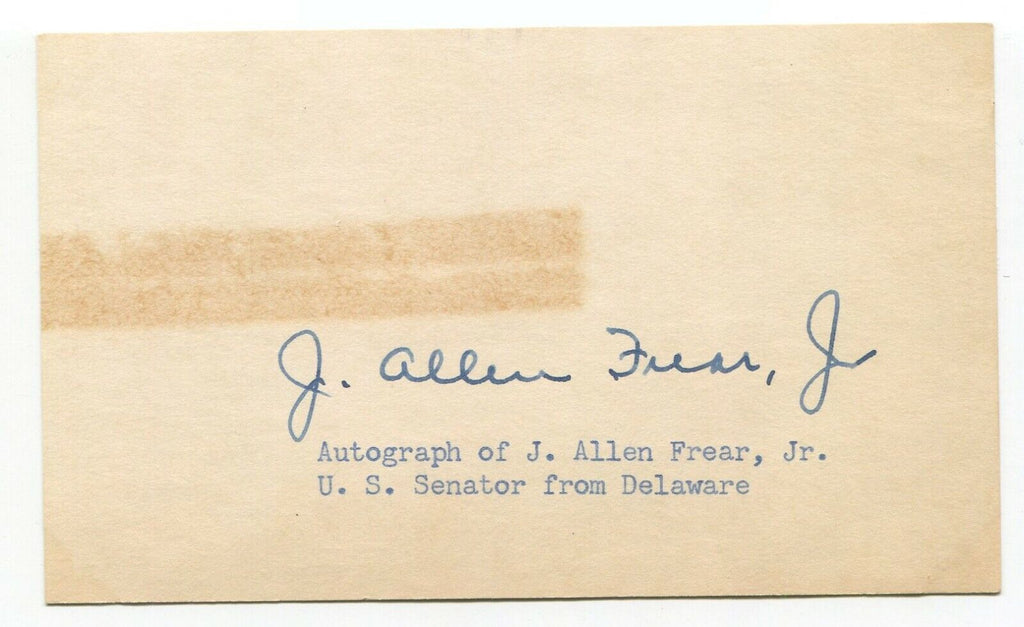 J. Allen Frear, Jr
Autograph of J. Allen Frear, Jr.
U. S. Senator from Delaware